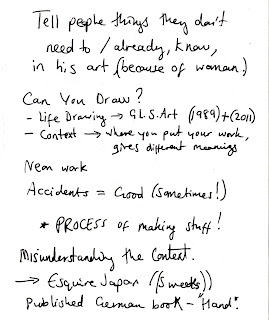 Tell people things they don't
need to / already, know,
in his art (because of woman.)
Can You Draw?
- Life Drawing → G.L.S. Art (1989) + (2011)
- Context → where you put your work,
gives different meanings
Neon work
Accidents = Good (Sometimes!)
* PROCESS of making stuff!
Misunderstanding the Context.
→ Esquire Japan (5 weeks))
Published German book - "Hand".